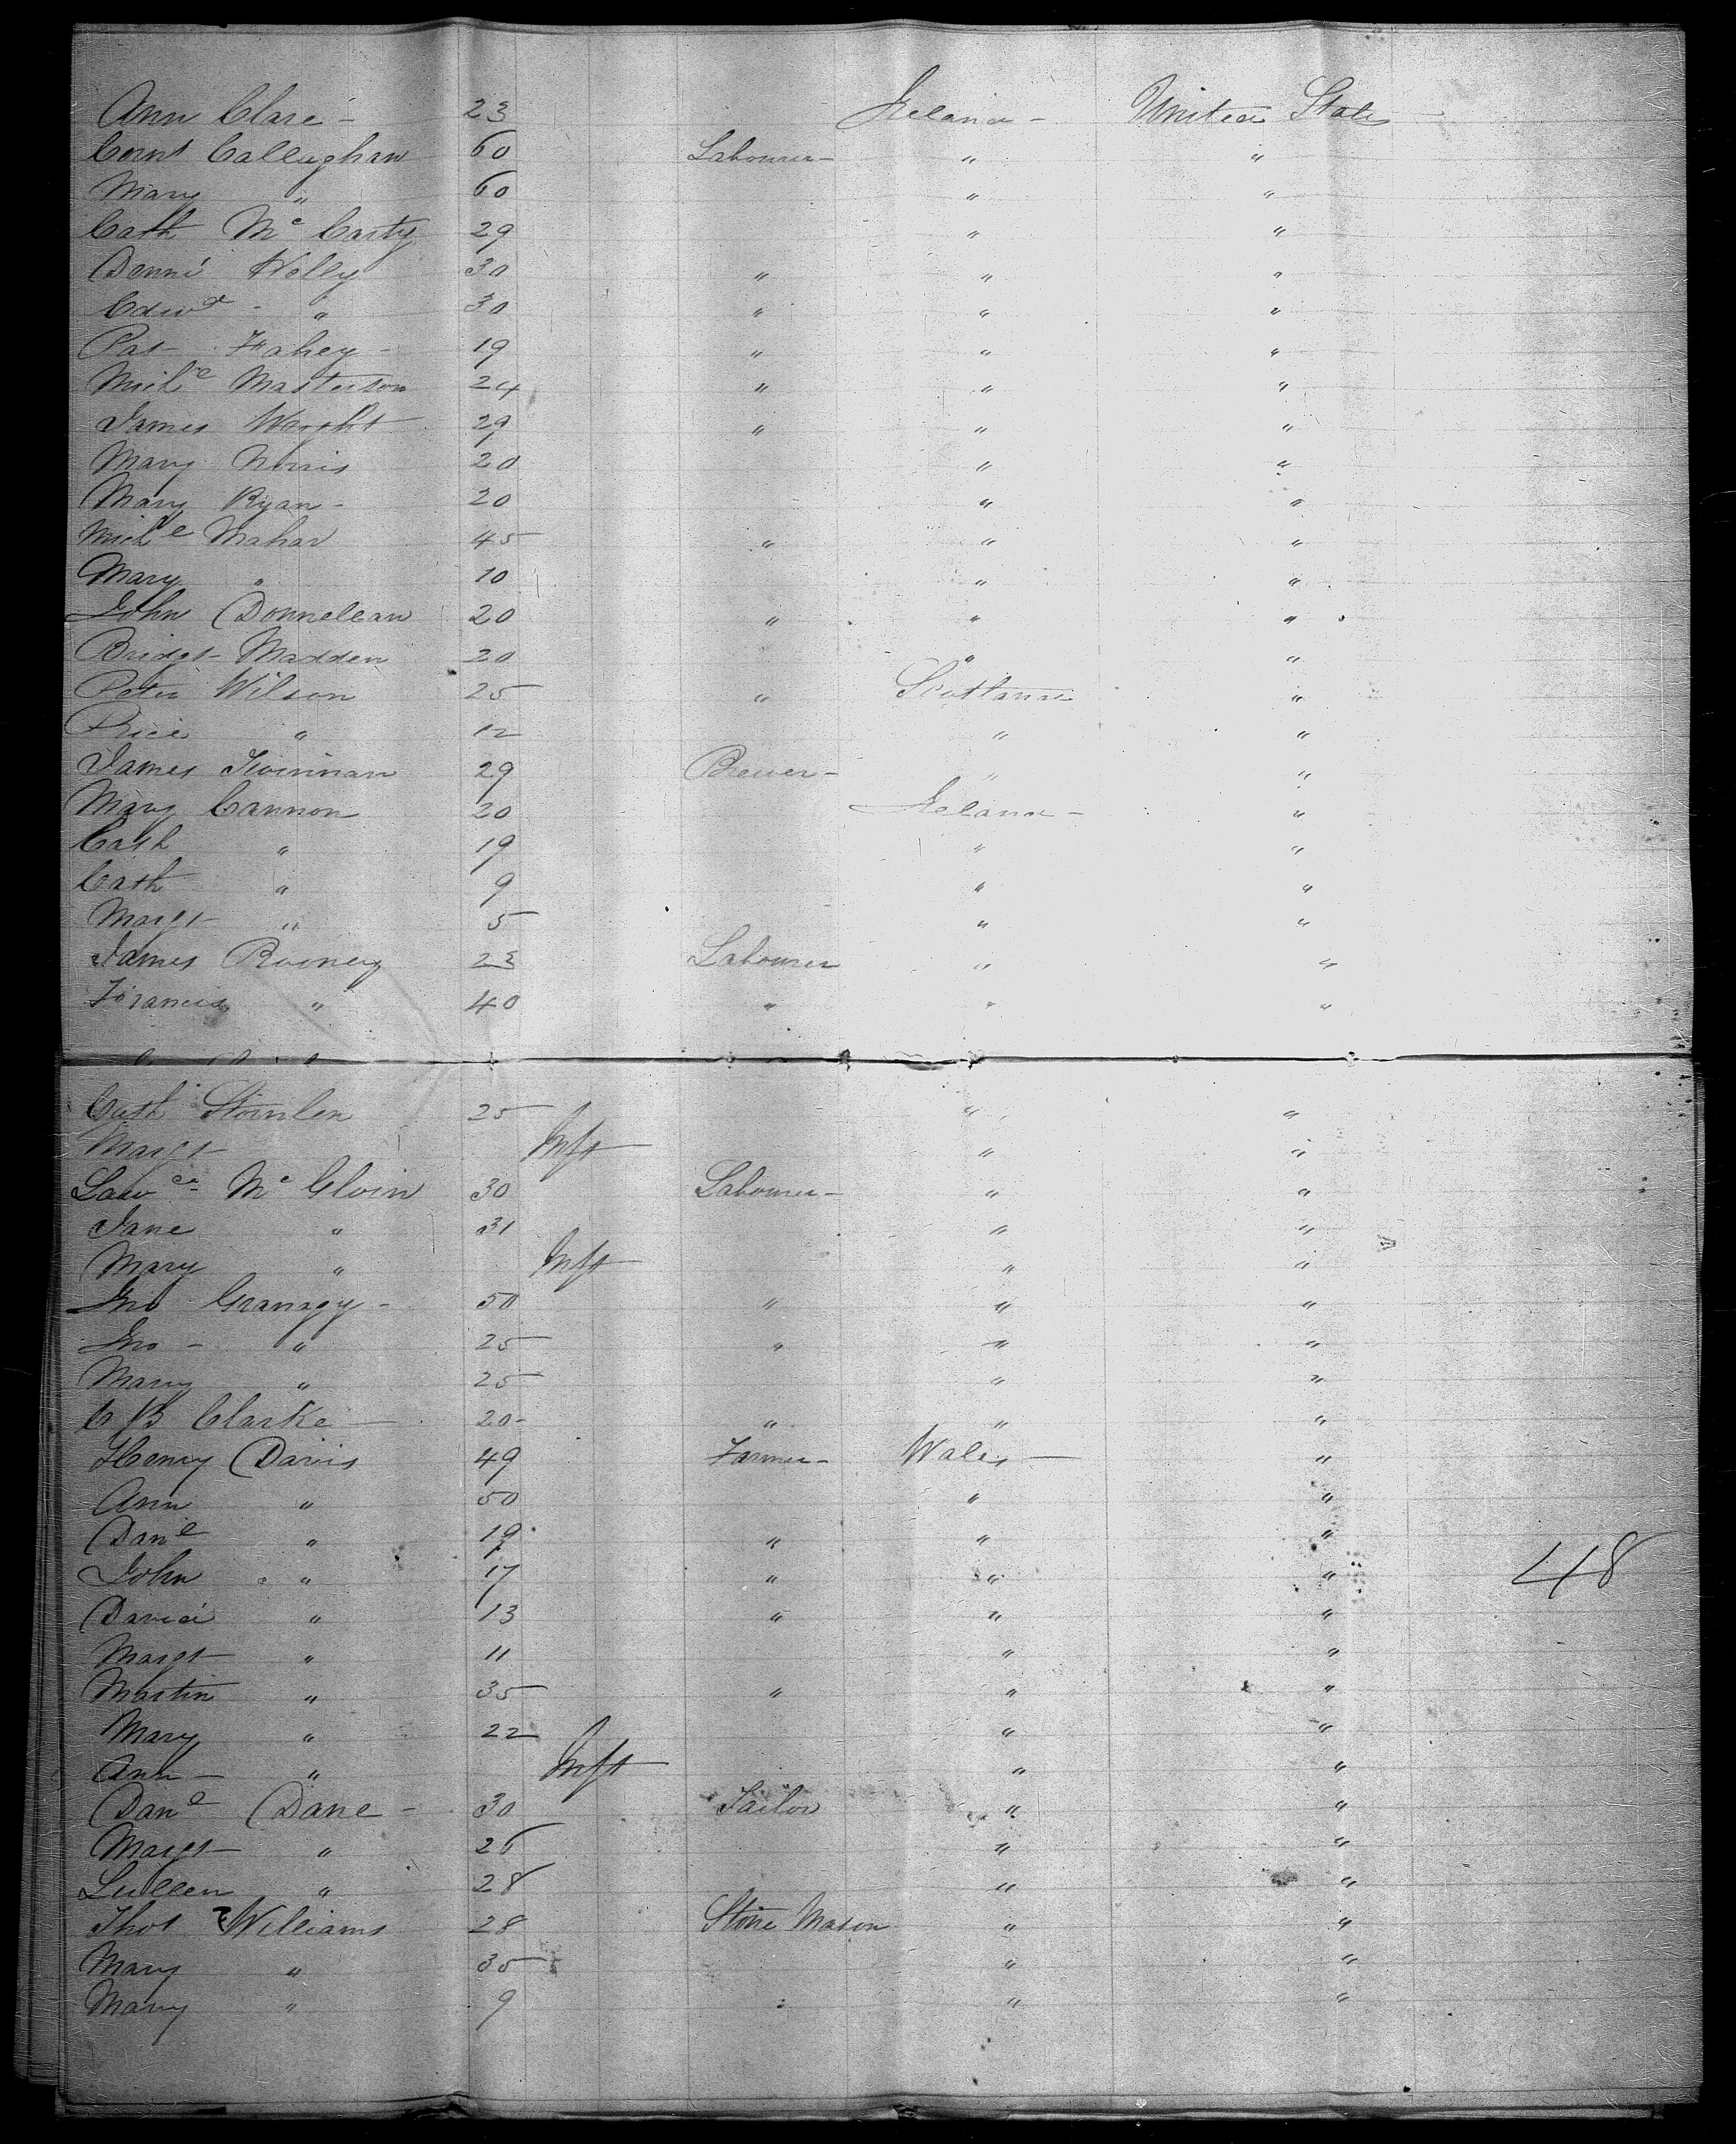 Ann Clare - 23 Ireland - United States
Corns Callaghan 60 Labourer - " "
Mary " 60 " "
Cath Mc Carty 29 " "
Denns Kelly 30 " " "
Edwd - " 30 " " "
Pat Fahey - 19 " " "
Michl Masterson 24 " " "
James Wright 29 " " "
Mary Norris 20 " "
Mary Ryan - 20 " "
Michl Mahar 45 " " "
Mary " 10 " "
John Donnellan 20 " " "
Bridgt Madden 20 " "
Peter Wilson 25 " Scotland "
Price " 12 " "
James 29 Brewer - " "
Mary Cannon 20 Ireland - "
Cath " 19 " "
Cath " 9 " "
Margt " 5 " "
James Rooney 23 Labourer " "
Francis " 40 " " "
Cath 25 " "
Margt Inft " "
Lawce Mc Gloin 30 Labourer - " "
Jane " 31 " "
Mary " Inft " "
Jno Granagy - 50 " " "
Jno - " 25 " " "
Mary " 25 " "
C B Clarke 20 - " " "
Henry Davis 49 Farmer - Wales "
Ann " 50 " "
Danl " 19 " " "
John " 17 " " " 48
David " 13 " " "
Margt " 11 " "
Martin " 35 " " "
Mary " 22 " "
Ann - " Inft " "
Danl Dane - 30 Tailor " "
Margt " 26 " "
Lullen " 28 " "
Thos Williams 28 Stone Mason " "
Mary " 35 " "
Mary " 9 " "